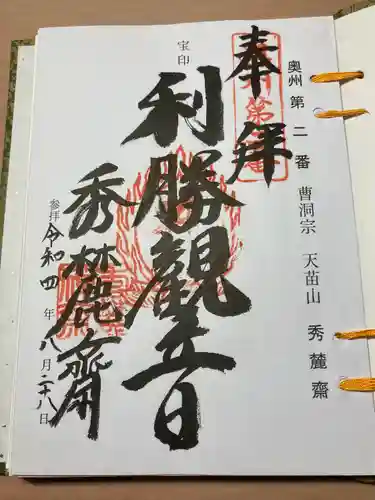 奥州第二番 曹洞宗 天苗山 秀麓齋
奉拝
宝印
利勝觀音
秀麓齋
参拝 令和四年八月二十八日